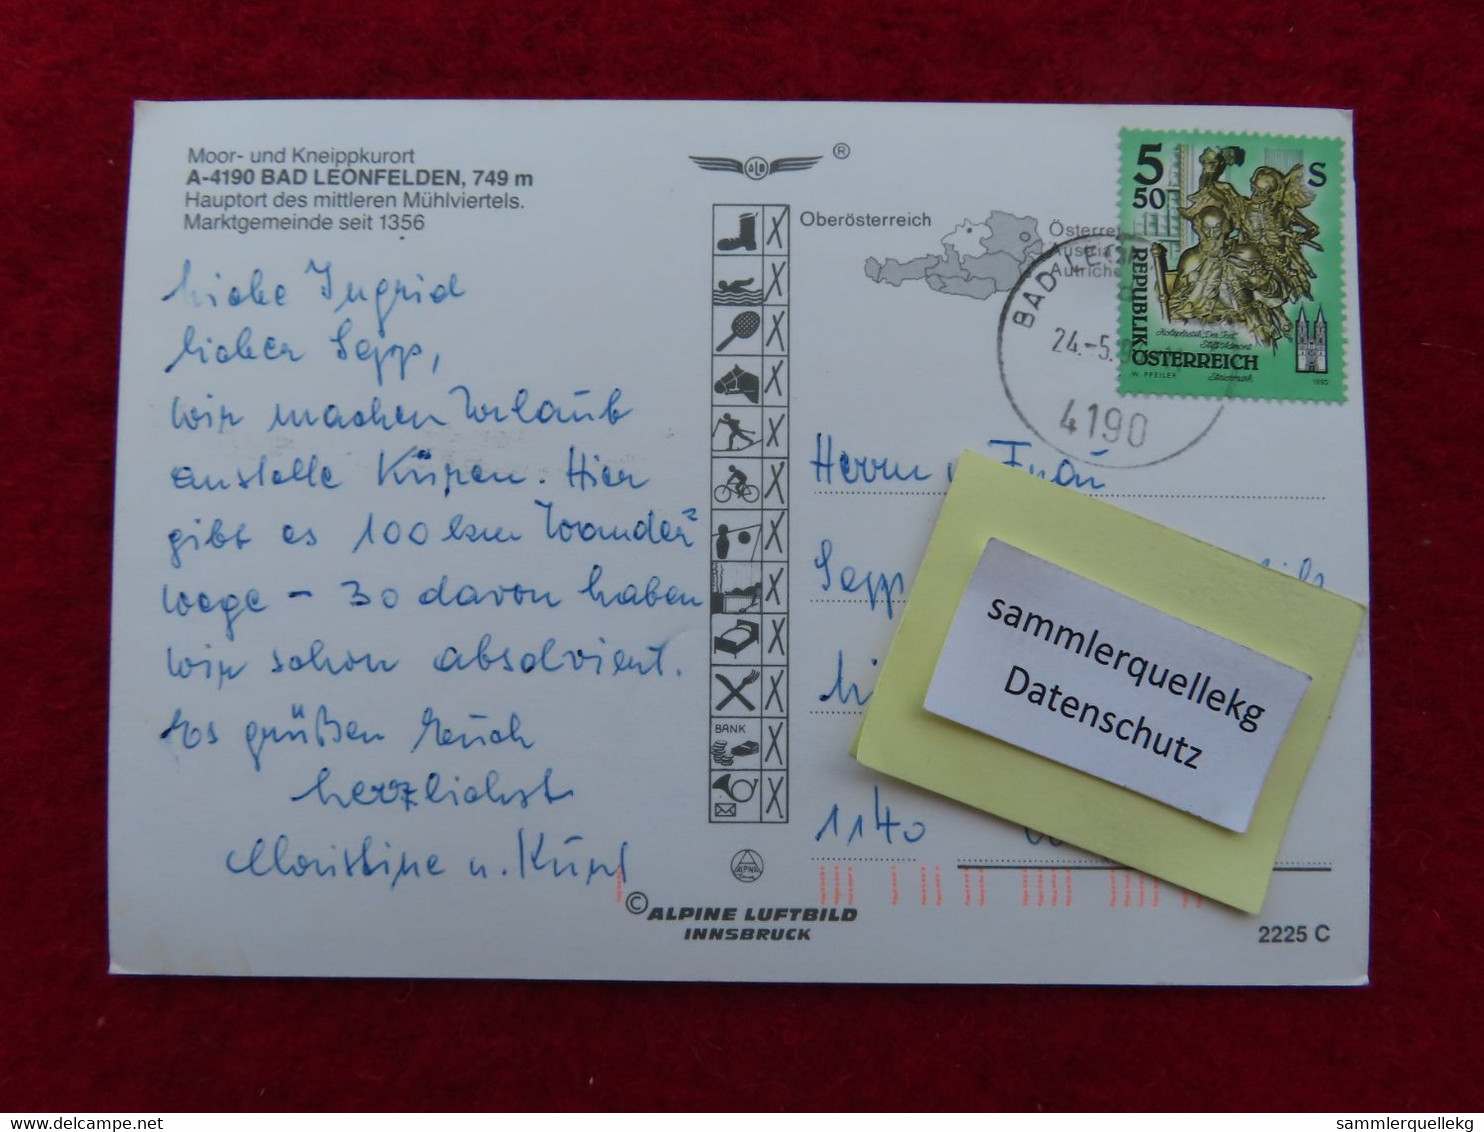 Moor- und Kneippkurort
A-4190 BAD LEONFELDEN, 749 m
Hauptort des mittleren Mühlviertels.
Marktgemeinde seit 1356
Liebe Ingrid
lieber Sepp,
wir machen Urlaub
anstelle Kuren. Hier
gibt es 100 km Wander=
wege - 30 davon haben
wir schon absolviert.
Es grüßen Euch
herzlichst
Christine u. Kurt
BANK
ALB
®
Oberösterreich
Österrei
Austria
Autriche
BAD LEON
24.-5.
4190
5 50 S
REPUBLIK
ÖSTERREICH
Stift Admont
Steiermark
W. PFEILER
1995
Herrn u. Frau
Sepp
1140
sammlerquellekg
Datenschutz
ALPINE
© ALPINE LUFTBILD
INNSBRUCK
2225 C
www.delcampe.net
sammlerquellekg